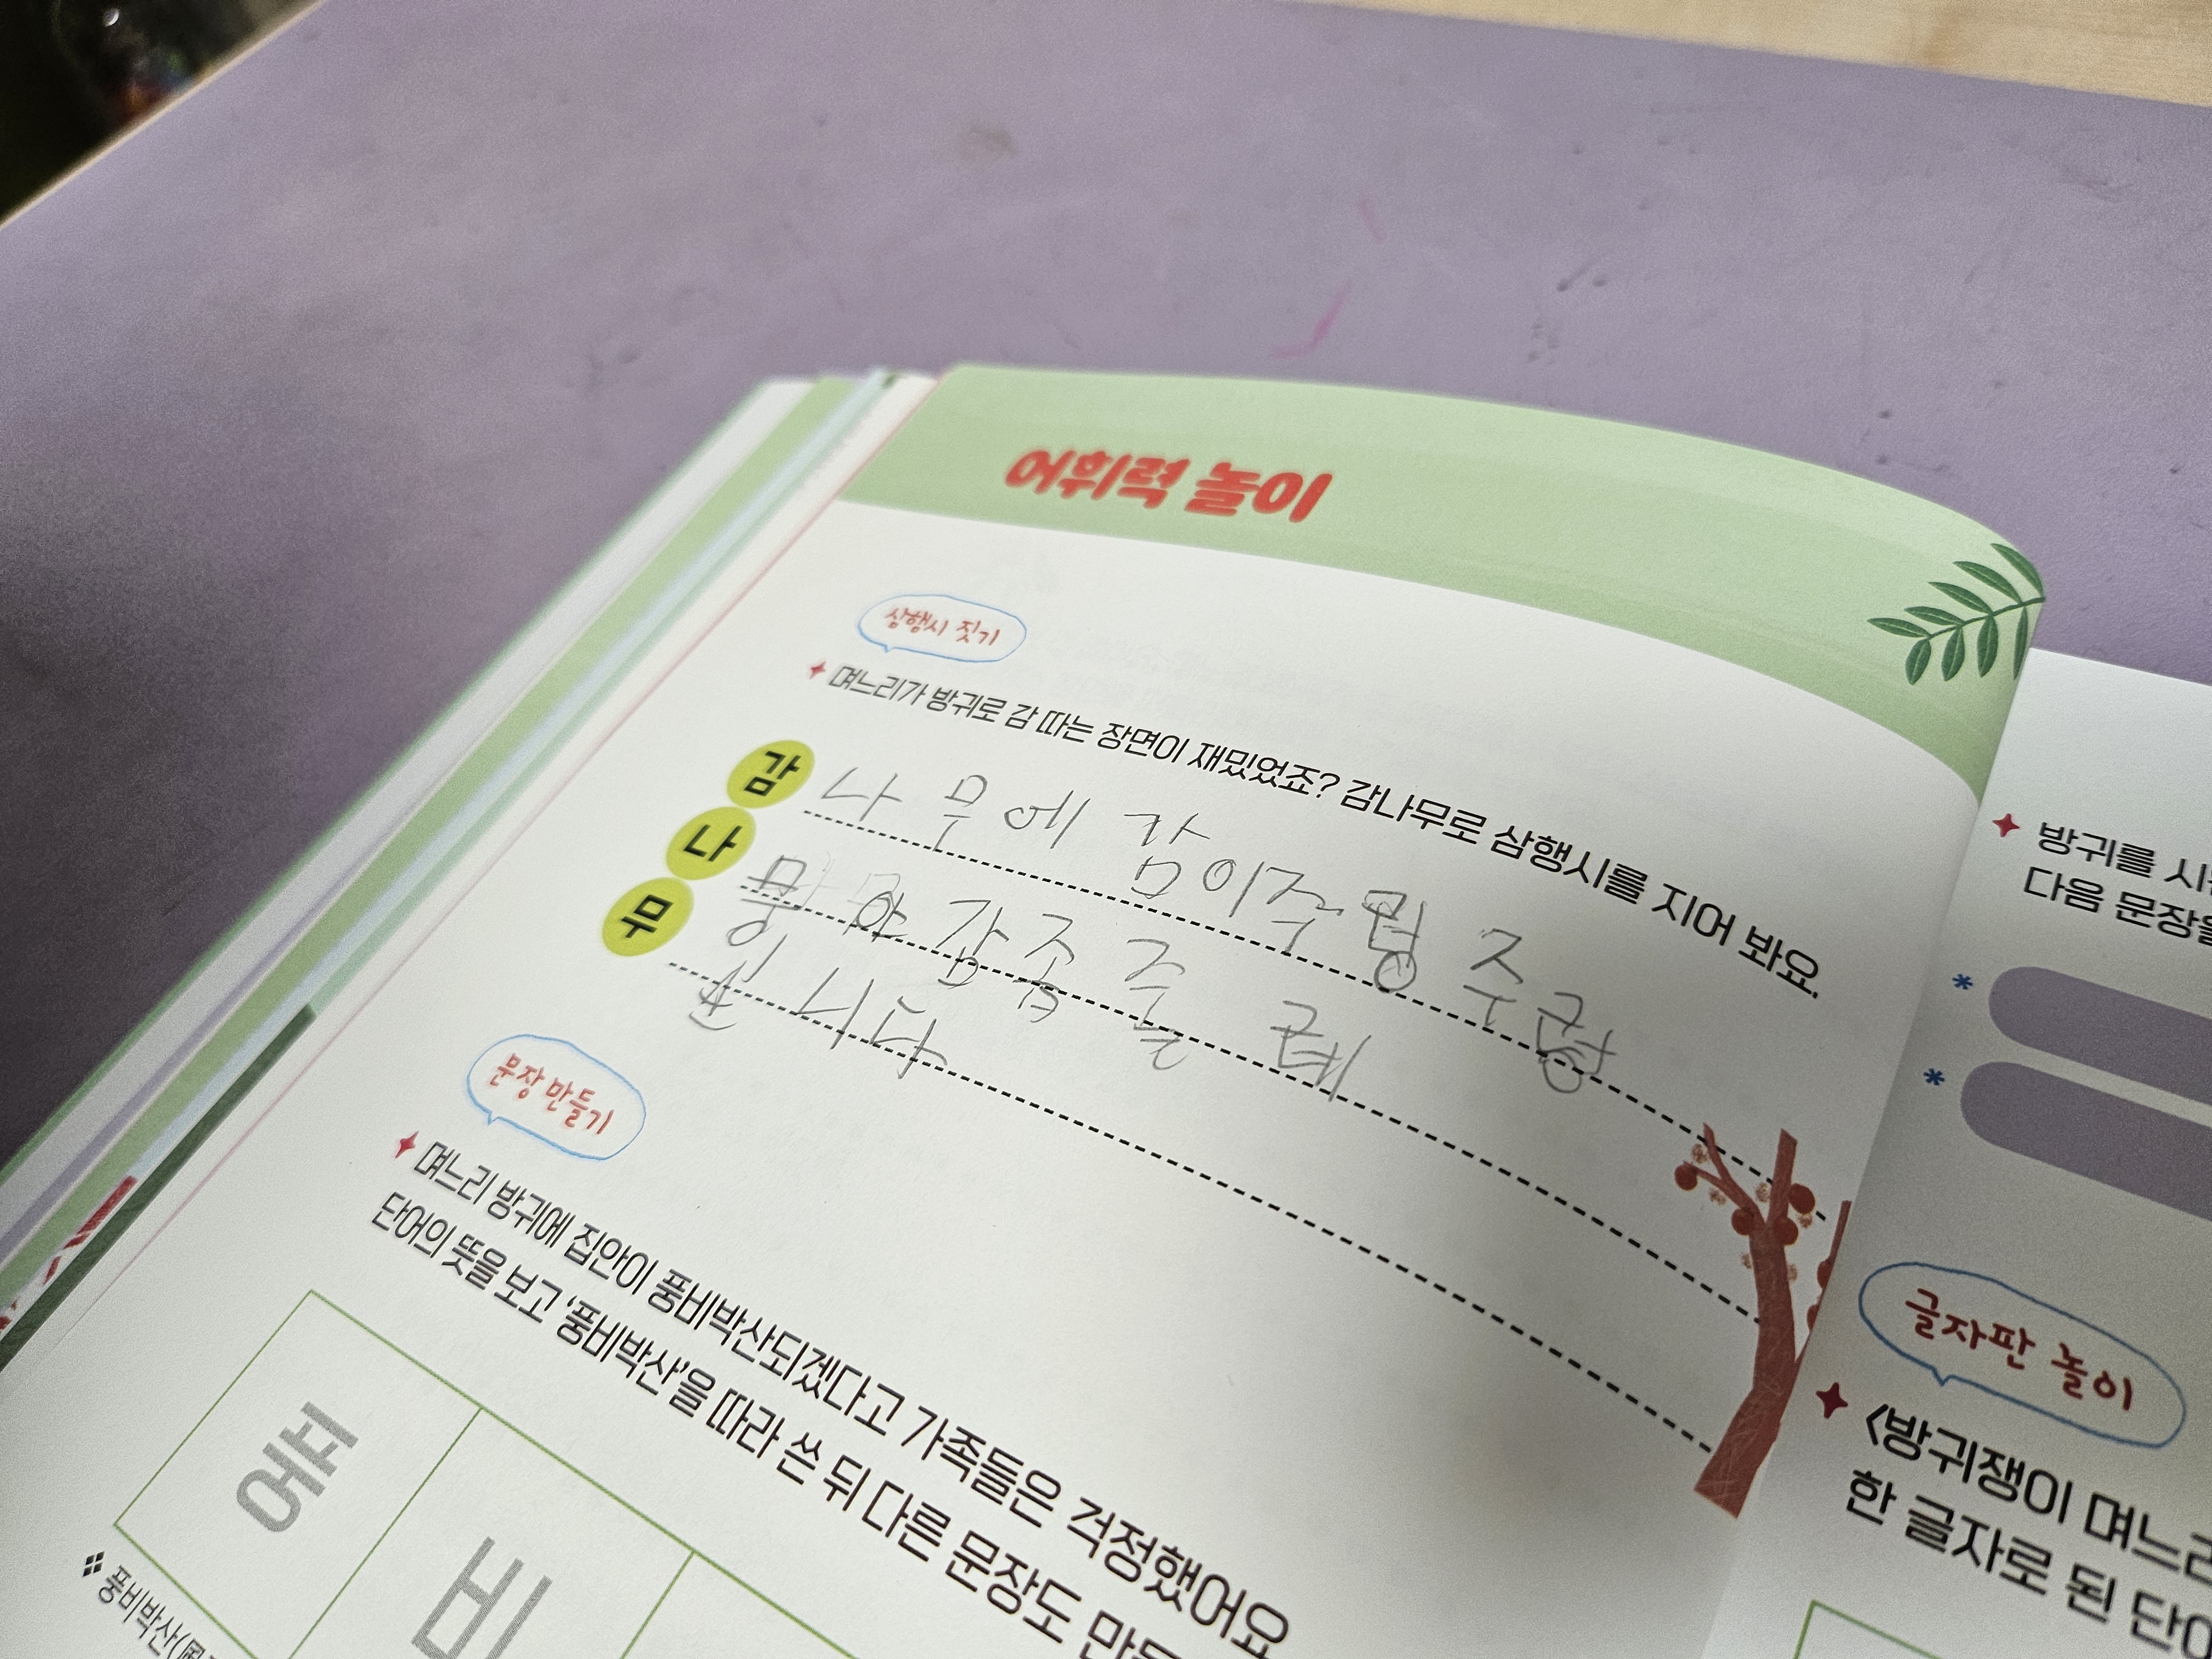 어휘력 놀이
삼행시 짓기
며느리가 방귀로 감 따는 장면이 재밌었죠? 감나무로 삼행시를 지어 봐요.
감 나무에 감이주렁 주렁
나 무야 감좀 줄 레
무
니다
문장 만들기
며느리 방귀에 집안이 풍비박산되겠다고 가족들은 걱정했어요
단어의 뜻을 보고 '풍비박산'을 따라 쓴 뒤 다른 문장도
풍
비
풍비박산
방귀를
다음 문장을
글자판 놀이
<방귀쟁이 며느리
한 글자로 된 단어